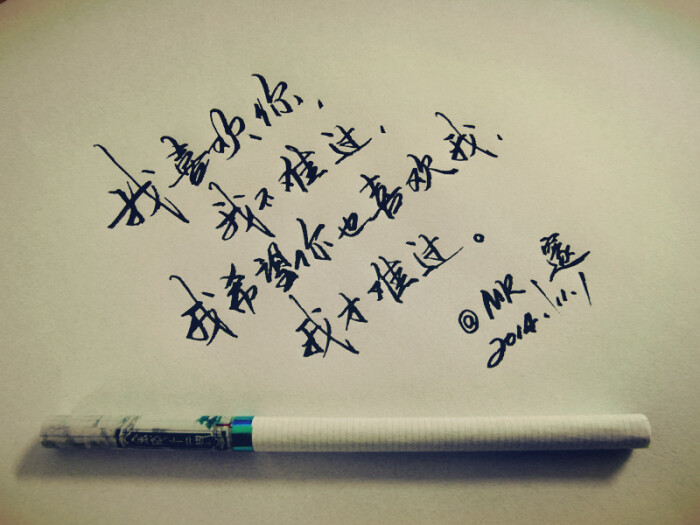 我喜欢你，
我不难过，
我希望你也喜欢我，
我才难过。
@MR
2014.11.1